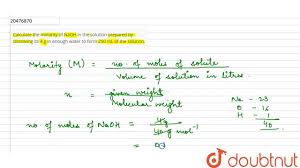 20476870
Calculate the molarity of NaOH in the solution prepared by
dissolving its 4 g in enough water to form 250 mL of the solution.
Molarity (M) = no. of moles of solute
Volume of solution in litres.
n = given weight
Molecular weight
Na - 23
O - 16
H - 1
40
no. of moles of NaOH = 4g
40 g mol⁻¹
= 0.1
doubtnut